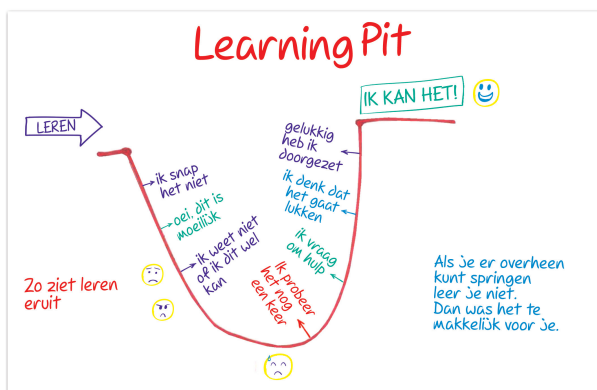 Learning Pit
LEREN
IK KAN HET!
ik snap
het niet
oei, dit is
moeilijk
ik weet niet
of ik dit wel
kan
Ik probeer
het nog
een keer
ik vraag
om hulp
ik denk dat
het gaat
lukken
gelukkig
heb ik
doorgezet
Zo ziet leren
eruit
Als je er overheen
kunt springen
leer je niet.
Dan was het te
makkelijk voor je.